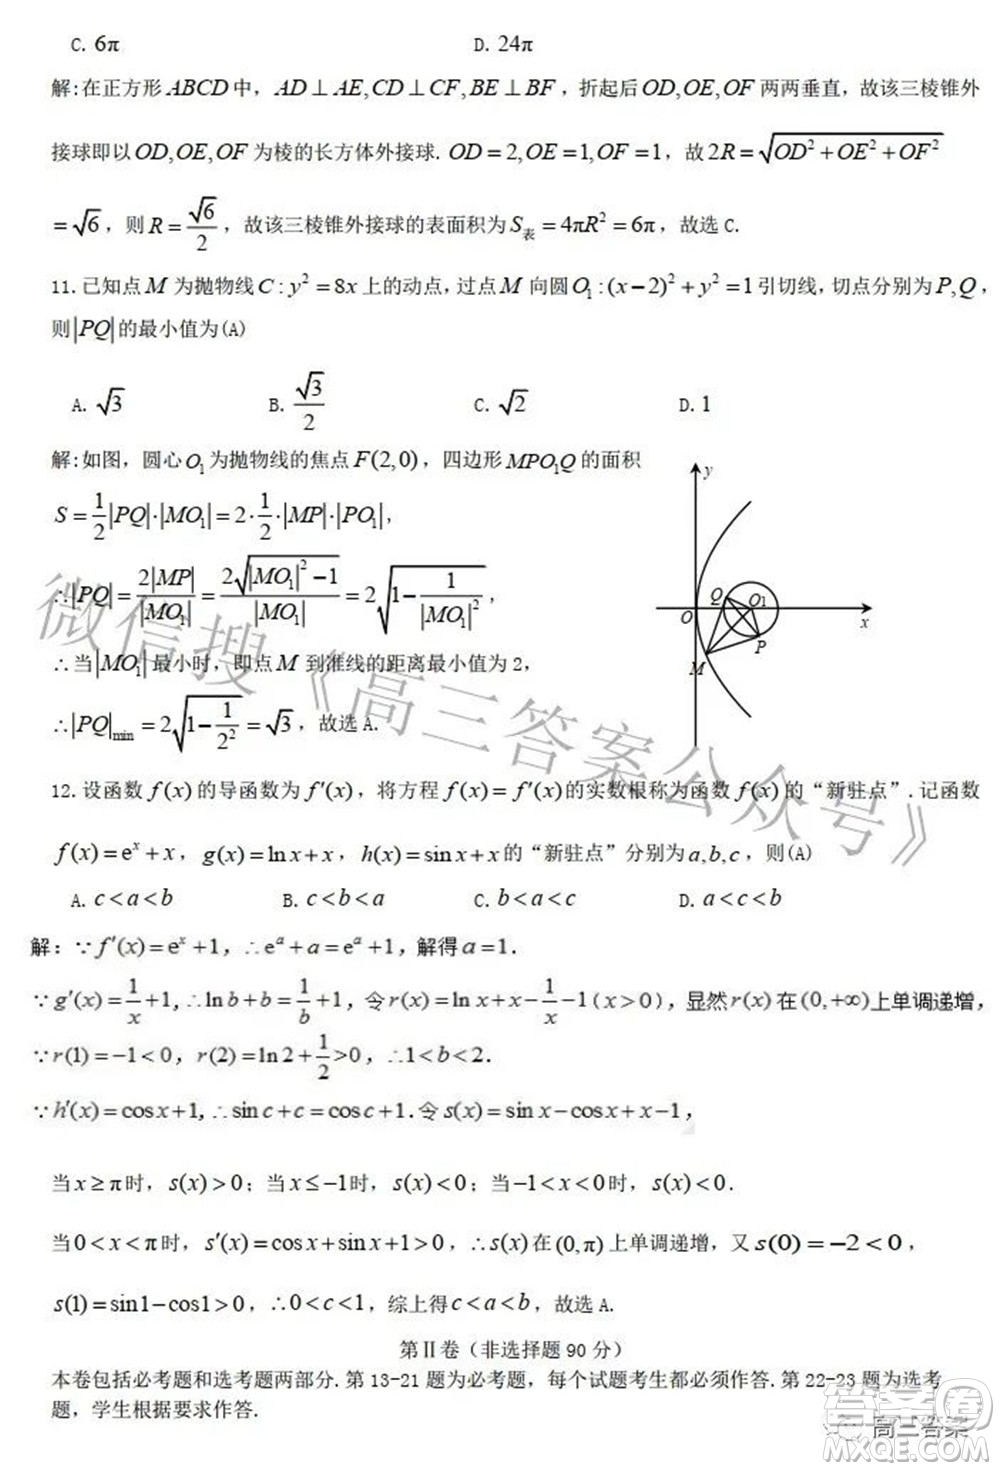 C. 6π D. 24π
解:在正方形 ABCD 中, AD⊥AE,CD⊥CF,BE⊥BF, 折起后 OD,OE,OF 两两垂直, 故该三棱锥外
接球即以 OD,OE,OF 为棱的长方体外接球. OD=2,OE=1,OF=1, 故 2R=√(OD²+OE²+OF²)
=√6, 则 R=√6/2, 故该三棱锥外接球的表面积为 S表=4πR²=6π, 故选 C.
11.已知点 M 为抛物线 C:y²=8x 上的动点, 过点 M 向圆 O₁:(x-2)²+y²=1 引切线, 切点分别为 P,Q,
则|PQ|的最小值为(A)
A. √3 B. √3/2 C. √2 D. 1
解:如图, 圆心 O₁ 为抛物线的焦点 F(2,0), 四边形 MPO₁Q 的面积
S=1/2|PQ|·|MO₁|=2·1/2·|MP|·|PO₁|,
∴|PQ|=2|MP|/|MO₁|=2√(|MO₁|²-1)/|MO₁|=2√(1-1/|MO₁|²),
∴当|MO₁|最小时, 即点 M 到准线的距离最小值为 2,
∴|PQ|min=2√(1-1/2²)=√3, 故选 A.
y
Q O₁
O x
P
M
12.设函数 f(x) 的导函数为 f′(x), 将方程 f(x)=f′(x) 的实数根称为函数 f(x) 的“新驻点”.记函数
f(x)=eˣ+x, g(x)=lnx+x, h(x)=sinx+x 的“新驻点”分别为 a,b,c, 则(A)
A. c<a<b B. c<b<a C. b<a<c D. a<c<b
解: ∵f′(x)=eˣ+1, ∴eᵃ+a=eᵃ+1, 解得 a=1.
∵g′(x)=1/x+1, ∴lnb+b=1/b+1, 令 r(x)=lnx+x-1/x-1(x>0), 显然 r(x) 在 (0,+∞) 上单调递增,
∵r(1)=-1<0, r(2)=ln2+1/2>0, ∴1<b<2.
∵h′(x)=cosx+1, ∴sinc+c=cosc+1.令 s(x)=sinx-cosx+x-1,
当 x≥π 时, s(x)>0; 当 x≤-1 时, s(x)<0; 当 -1<x<0 时, s(x)<0.
当 0<x<π 时, s′(x)=cosx+sinx+1>0, ∴s(x) 在 (0,π) 上单调递增, 又 s(0)=-2<0,
s(1)=sin1-cos1>0, ∴0<c<1, 综上得 c<a<b, 故选 A.
第Ⅱ卷(非选择题 90 分)
本卷包括必考题和选考题两部分.第 13-21 题为必考题, 每个试题考生都必须作答.第 22-23 题为选考
题, 学生根据要求作答.
微信搜《高三答案公众号》
答案圈
高三答案
MXQE.COM